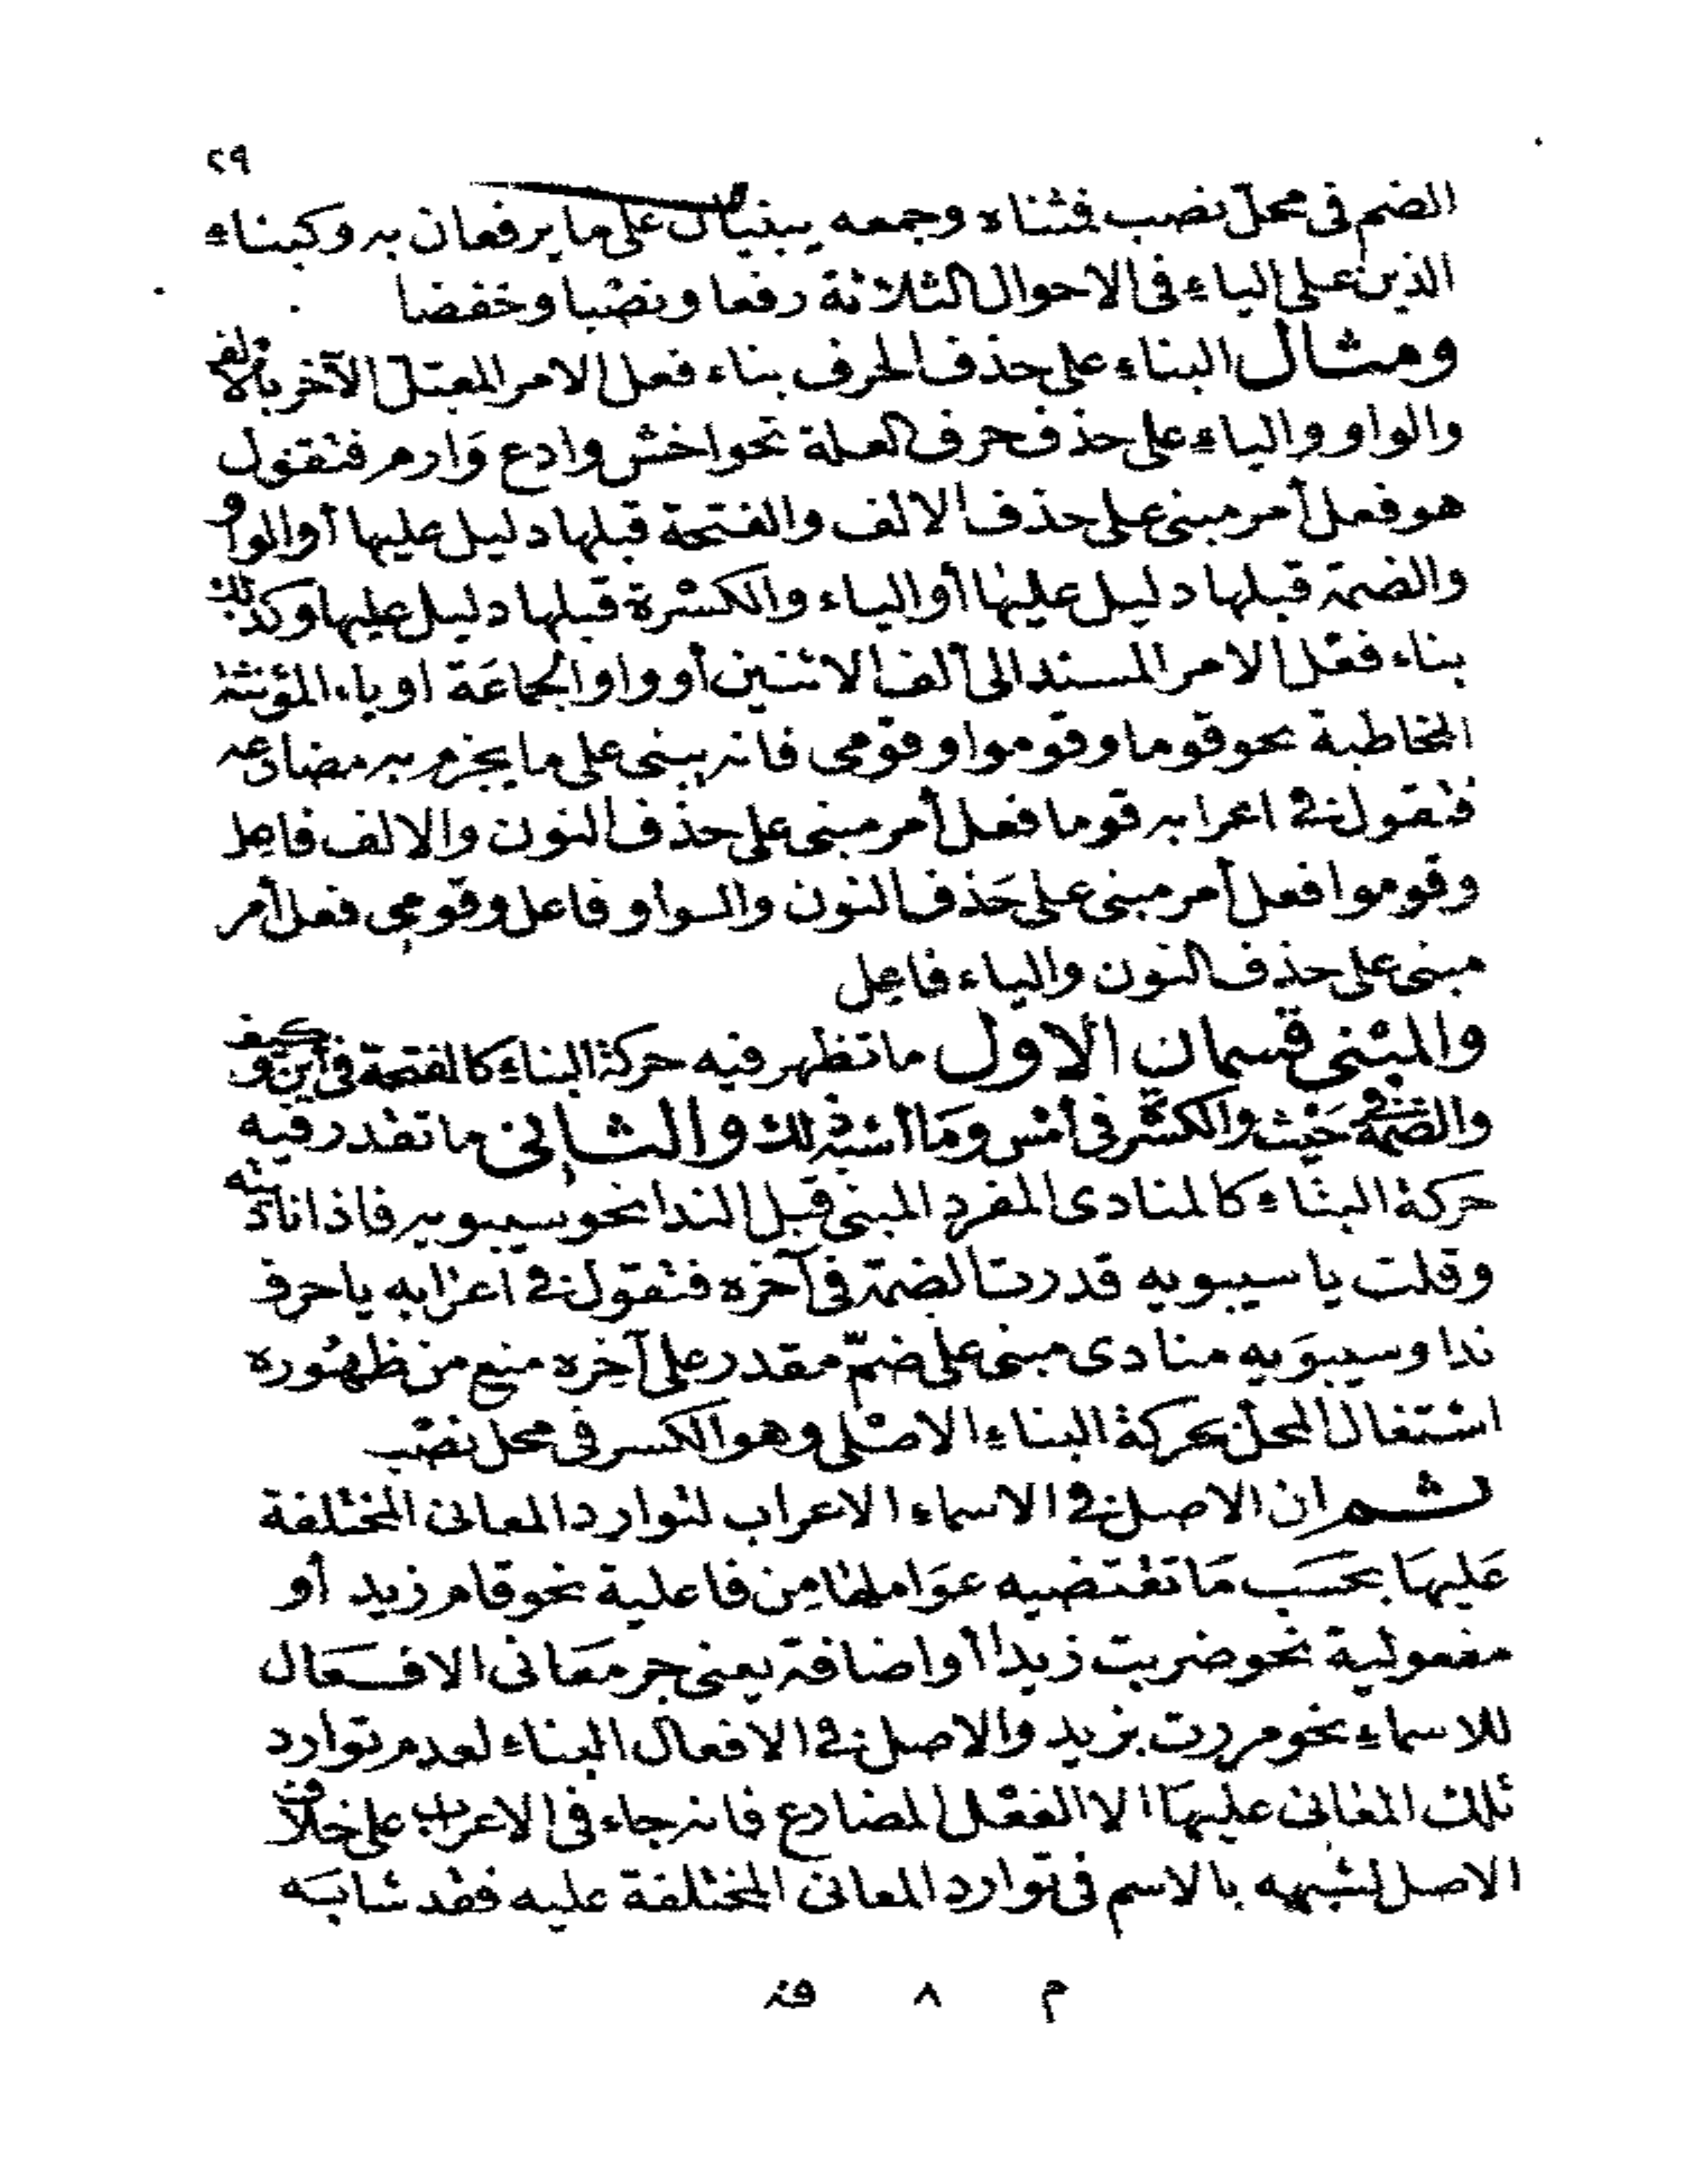 ٢٩
الضم فى محل نصب فثناه وجمعه يبنيان على ما يرفعان به وكبناء
الذين على الياء فى الاحوال الثلاثة رفعا ونصبا وخفضا
ومثال البناء على حذف الحرف بناء فعل الامر المعتل الآخر بالالف
والواو والياء على حذف حرف العلة نحو اخش وادع وَارم فتقول
هو فعل أمر مبنى على حذف الالف والفتحة قبلها دليل عليها أو الواو
والضمة قبلها دليل عليها أو الياء والكسرة قبلها دليل عليها وكذلك
بناء فعل الامر المسند الى ألف الاثنين أو واو الجماعَة او ياء المؤنثة
المخاطبة نحو قوما وقوموا وقومى فانه يبنى على ما يجزم به مضارعه
فتقول فى اعرابه قوما فعل أمر مبنى على حذف النون والالف فاعل
وقوموا فعل أمر مبنى على حَذف النون والواو فاعل وقومى فعل أمر
مبنى على حذف النون والياء فاعل
والمبنى قسمان الاول ما تظهر فيه حركة البناء كالفتحة فى أين وكيف
والضمة فى حَيث والكسرة فى أمس وَما أشبه ذلك والثانى ما تقدر فيه
حركة البناء كالمنادى المفرد المبنى قبل الندا نحو سيبويه فاذا ناديته
وقلت يا سيبويه قدرت الضمة فى آخره فتقول فى اعرابه يا حرف
ندا وسيبوَيه منادى مبنى على ضمّ مقدر على آخره منع من ظهوره
اشتغال المحل بحركة البناء الاصلى وهو الكسر فى محل نصب
ثم ان الاصل فى الاسماء الاعراب لتوارد المعانى المختلفة
عَليهَا بحسَب مَا تقتضيه عوَاملها من فاعلية نحو قام زيد أو
مفعولية نحو ضربت زيدا أو اضافة يعنى جر معَانى الافعَال
للاسماء نحو مررت بزيد والاصل فى الافعال البناء لعدم توارد
تلك المعانى عليهَا الا الفعل المضارع فانه جاء فى الاعراب على خلاف
الاصل لشبهه بالاسم فى توارد المعانى المختلفة عليه فقد شابَه
م ٨ فذ